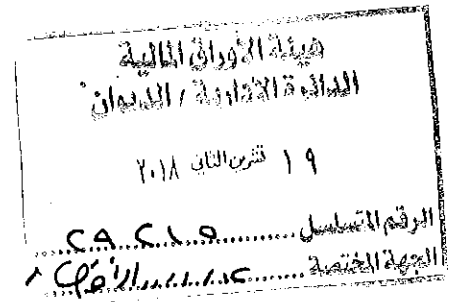 هيئة الأوراق المالية
الدائرة الإدارية / الديوان
١٩ تشرين الثاني ٢٠١٨
الرقم المتسلسل
الجهة المختصة